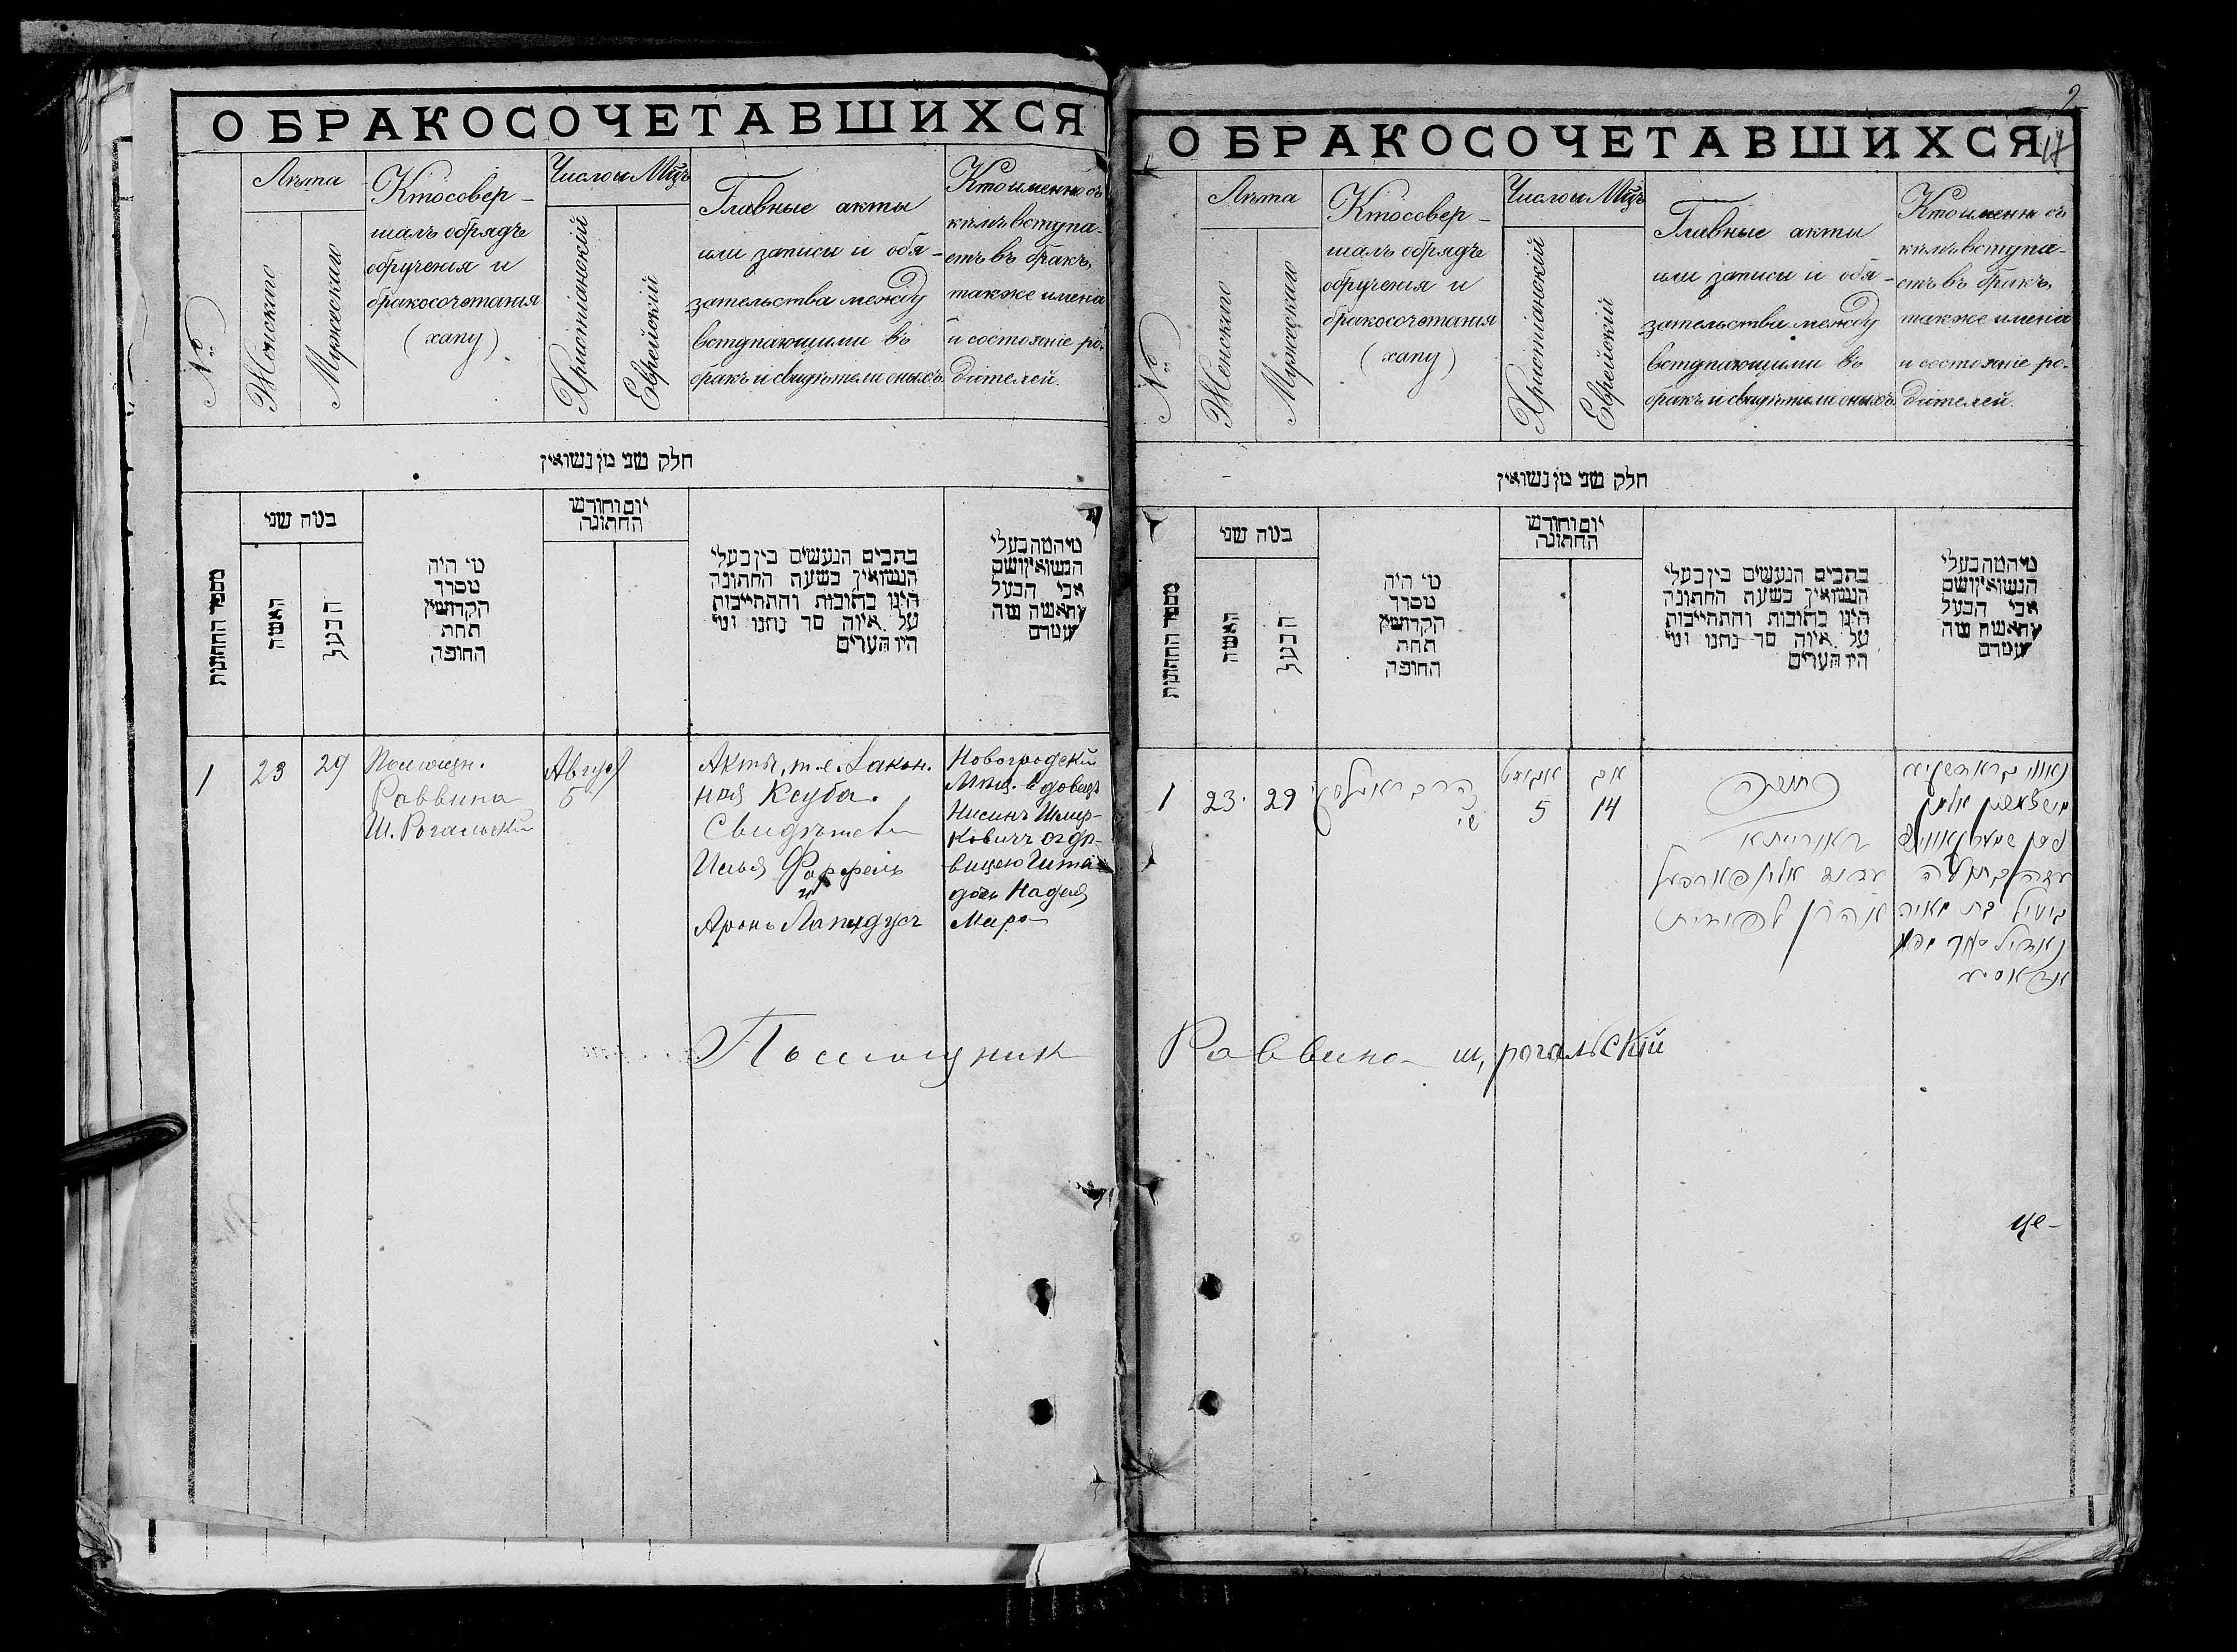 О БРАКОСОЧЕТАВШИХСЯ
№
Лѣта
Женскаго
Мужескаго
Кто совер-
шалъ обрядъ
обрученія и
бракосочетанія
(хапу)
Число и Мѣц
Христіанскій
Еврейскій
Главные акты
или записи и обя-
зательства между
вступающими въ
бракъ и свидѣтели оныхъ.
Кто именно съ
кѣмъ вступа-
етъ въ бракъ,
также имена
и состояніе ро-
дителей.
חלק שני מן נשואין
מספר החתונות
כמה שני
האשה
הבעל
מי היה
מסדר
הקדושין
תחת
החופה
יום וחודש
החתונה
כתבים הנעשים בין בעלי
הנשואין בשעת החתונה
היינו כתובות והתחייבות
על איזה סך נתנו ומי
היו העדים
מי המה בעלי
הנשואין ושם
אבי הבעל
והאשה ומה
מעמדם
1
23
29
Помощн.
Раввина
Ш. Рогальскій
Август
5
Акты, т.е. Закон.
ная Ксуба.
Свидѣтели
Илья
и
Аронъ Лапидус
Новогродскій
Мѣщ. вдовецъ
Нисинъ Шмер-
ковичъ съ дѣ-
вицею Гита
дочь Наделя
Меро
Помощник
О БРАКОСОЧЕТАВШИХСЯ
2
17
№
Лѣта
Женскаго
Мужескаго
Кто совер-
шалъ обрядъ
обрученія и
бракосочетанія
(хапу)
Число и Мѣц
Христіанскій
Еврейскій
Главные акты
или записи и обя-
зательства между
вступающими въ
бракъ и свидѣтели оныхъ.
Кто именно съ
кѣмъ вступа-
етъ въ бракъ,
также имена
и состояніе ро-
дителей.
חלק שני מן נשואין
מספר החתונות
כמה שני
האשה
הבעל
מי היה
מסדר
הקדושין
תחת
החופה
יום וחודש
החתונה
כתבים הנעשים בין בעלי
הנשואין בשעת החתונה
היינו כתובות והתחייבות
על איזה סך נתנו ומי
היו העדים
מי המה בעלי
הנשואין ושם
אבי הבעל
והאשה ומה
מעמדם
1
23
29
הרב ראגאלסקי
אויגוסט
5
אב
14
כתובה
דאורייתא
אהרן לאפידות
Раввина Ш, рогальскій
це-